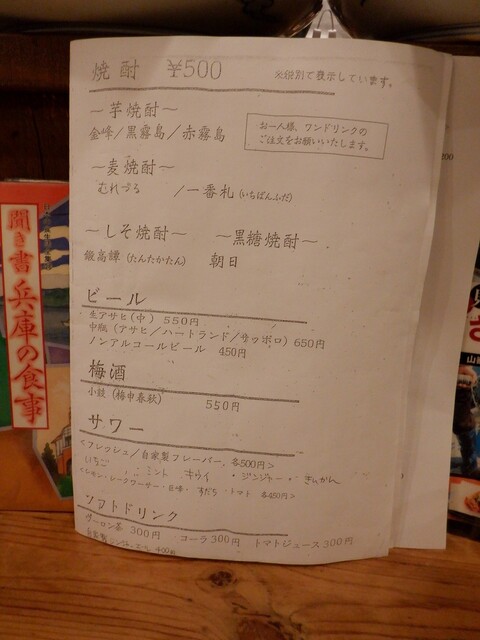 焼酎 ¥500
※税別で表示しています。
～芋焼酎～
金峰／黒霧島／赤霧島
お一人様、ワンドリンクの
ご注文をお願いいたします。
～麦焼酎～
むれづる ／一番札(いちばんふだ)
～しそ焼酎～ ～黒糖焼酎～
鍛高譚(たんたかたん) 朝日
ビール
生アサヒ(中) 550円
中瓶(アサヒ／ハートランド／サッポロ)650円
ノンアルコールビール 450円
梅酒
小鼓(梅申春秋) 550円
サワー
<フレッシュ／自家製フレーバー、各500円>
いちご ・ミント ・キウイ ・ジンジャー ・きんかん
・巨峰・すだち・トマト 各450円>
ソフトドリンク
ウーロン茶 300円 コーラ300円 トマトジュース300円
自家製ジンジャーエール 400円
聞き書 兵庫の食事